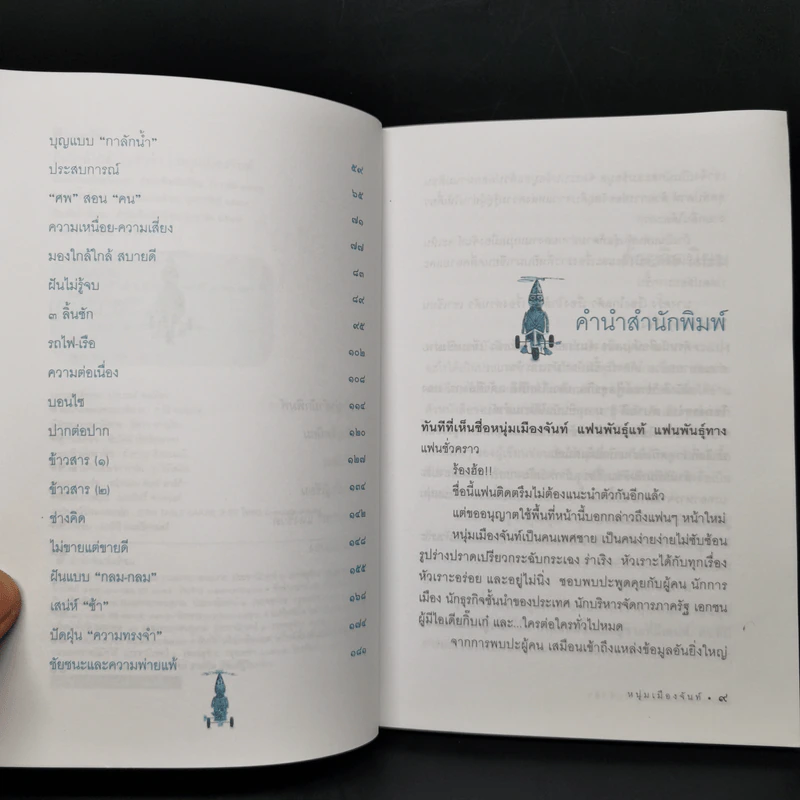 บุญแบบ “กาลักน้ำ” ๕๙
ประสบการณ์ ๖๕
“ศพ” สอน “คน” ๗๑
ความเหนื่อย-ความเสี่ยง ๗๗
มองใกล้ใกล้ สบายดี ๘๓
ฝันไม่รู้จบ ๘๙
๓ ลิ้นชัก ๙๕
รถไฟ-เรือ ๑๐๒
ความต่อเนื่อง ๑๐๘
บอนไซ ๑๑๔
ปากต่อปาก ๑๒๐
ข้าวสาร (๑) ๑๒๘
ข้าวสาร (๒) ๑๓๔
ช่างคิด ๑๔๒
ไม่ขายแต่ขายดี ๑๔๘
ฝันแบบ “กลม-กลม” ๑๕๕
เสน่ห์ “ช้า” ๑๖๘
ปัดฝุ่น “ความทรงจำ” ๑๗๔
ชัยชนะและความพ่ายแพ้ ๑๘๑
คำนำสำนักพิมพ์
ทันทีที่เห็นชื่อหนุ่มเมืองจันท์ แฟนพันธุ์แท้ แฟนพันธุ์ทาง
แฟนชั่วคราว
ร้องฮ้อ!!
ชื่อนี้แฟนติดตรึมไม่ต้องแนะนำตัวกันอีกแล้ว
แต่ขออนุญาตใช้พื้นที่หน้านี้บอกกล่าวถึงแฟนๆ หน้าใหม่
หนุ่มเมืองจันท์เป็นคนเพศชาย เป็นคนง่ายง่ายไม่ซับซ้อน
รูปร่างปราดเปรียวกระฉับกระเฉง ร่าเริง หัวเราะได้กับทุกเรื่อง
หัวเราะอร่อย และอยู่ไม่นิ่ง ชอบพบปะพูดคุยกับผู้คน นักการ
เมือง นักธุรกิจชั้นนำของประเทศ นักบริหารจัดการภาครัฐ เอกชน
ผู้มีไอเดียกิ๊บเก๋ และ...ใครต่อใครทั่วไปหมด
จากการพบปะผู้คน เสมือนเข้าถึงแหล่งข้อมูลอันยิ่งใหญ่
หนุ่มเมืองจันท์ • ๙